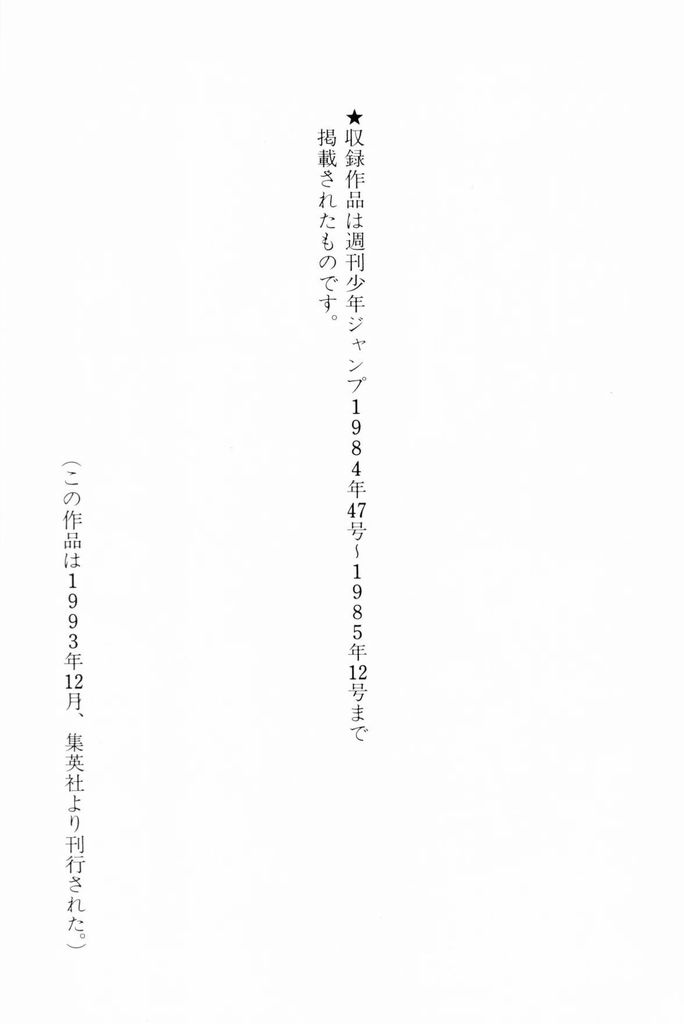 ★収録作品は週刊少年ジャンプ1984年47号～1985年12号まで
掲載されたものです。
(この作品は1993年12月、集英社より刊行された。)